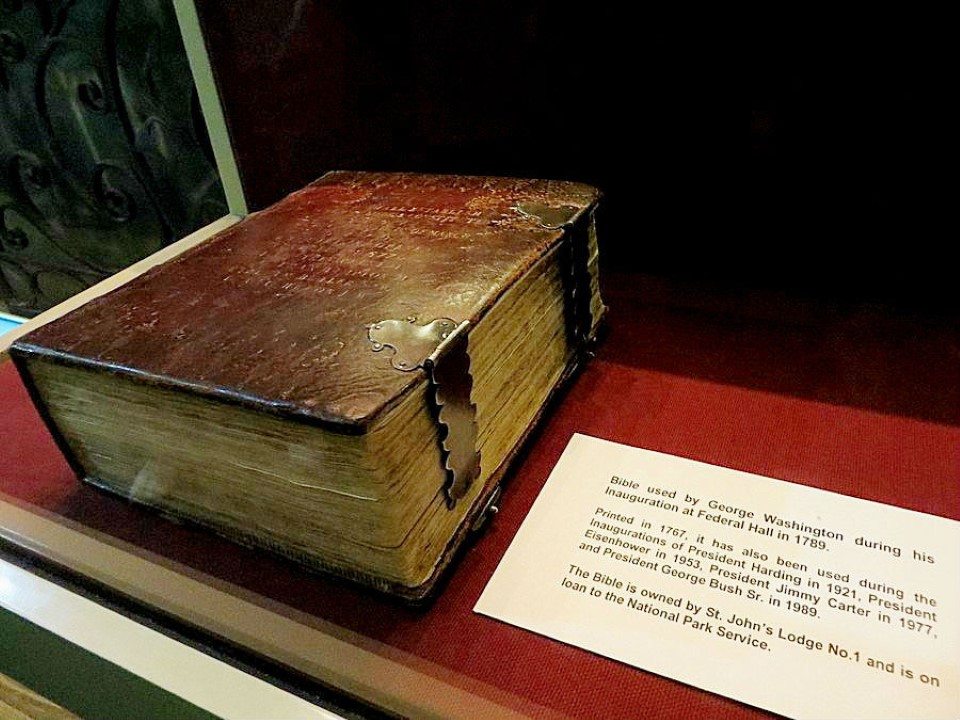 Bible used by George Washington during his
Inauguration at Federal Hall in 1789.
Printed in 1767, it has also been used during the
Inaugurations of President Harding in 1921, President
Eisenhower in 1953, President Jimmy Carter in 1977,
and President George Bush Sr. in 1989.
The Bible is owned by St. John's Lodge No.1 and is on
loan to the National Park Service.